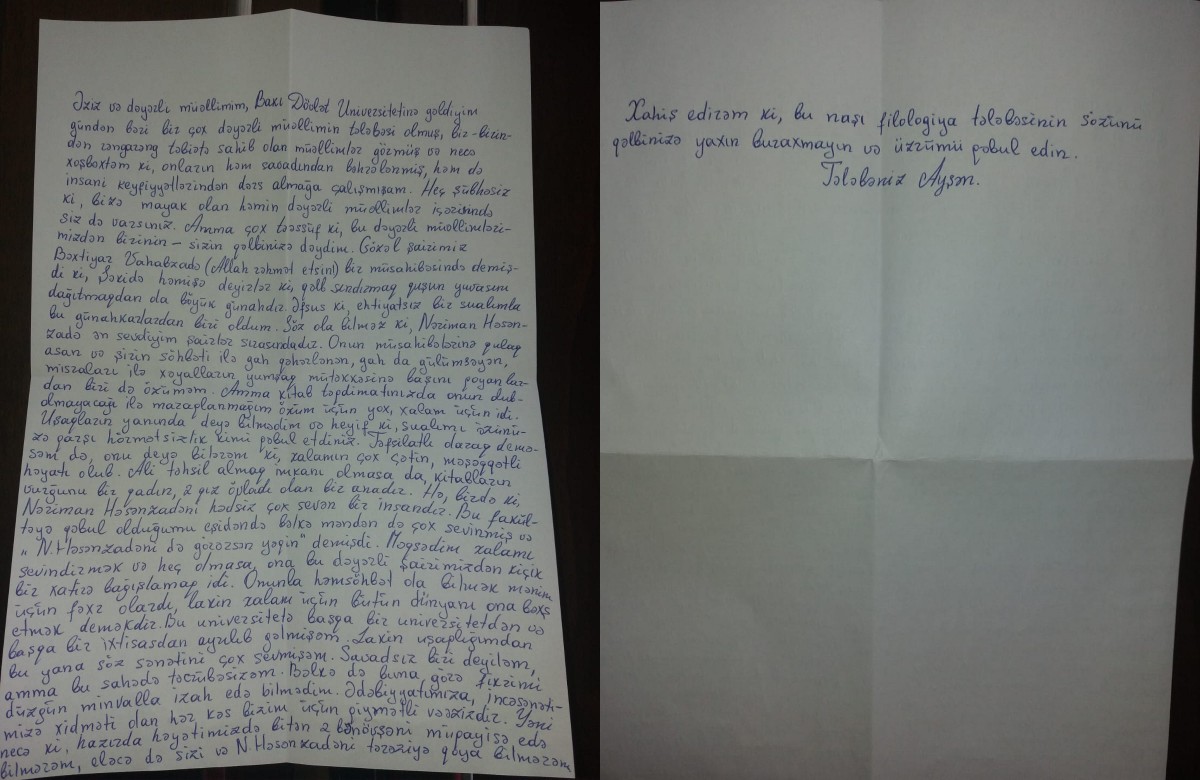 Əziz və dəyərli müəllimim, Bakı Dövlət Universitetinə gəldiyim
gündən bəri bir çox dəyərli müəllimin tələbəsi olmuş, bir-birin-
dən rəngarəng təbiətə sahib olan müəllimlər görmüş və necə
xoşbəxtəm ki, onların həm savadından bəhrələnmiş, həm də
insani keyfiyyətlərindən dərs almağa çalışmışam. Heç şübhəsiz
ki, bizə mayak olan həmin dəyərli müəllimlər içərisində
siz də varsınız. Amma çox təəssüf ki, bu dəyərli müəllimləri-
mizdən birinin – sizin qəlbinizə dəydim. Gözəl şairimiz
Bəxtiyar Vahabzadə (Allah rəhmət etsin!) bir müsahibəsində demiş-
di ki, Şəkidə həmişə deyirlər ki, qəlb sındırmaq quşun yuvasını
dağıtmaqdan da böyük günahdır. Əfsus ki, ehtiyatsız bir sualımla
bu günahkarlardan biri oldum. Söz ola bilməz ki, Nəriman Həsən-
zadə ən sevdiyim şairlər sırasındadır. Onun müsahibələrinə qulaq
asan və şirin söhbəti ilə gah qəhərlənən, gah da gülümsəyən,
misraları ilə xəyalların yumşaq mütəkkəsinə başını qoyanlar-
dan biri də özüməm. Amma kitab təqdimatınızda onun dəb-
olmayacağı ilə maraqlanmağım özüm üçün yox, xalam üçün idi.
Uşaqların yanında deyə bilmədim və heyif ki, sualımı özünü-
zə qarşı hörmətsizlik kimi qəbul etdiniz. Təfsilatlı olaraq demə-
səm də, onu deyə bilərəm ki, xalamın çox çətin, məşəqqətli
həyatı olub. Ali təhsil almaq imkanı olmasa da, kitabların
vurğunu bir qadın, 2 qız övladı olan bir anadır. Hə, birdə ki,
Nəriman Həsənzadəni hədsiz çox sevən bir insandır. Bu fakül-
təyə qəbul olduğumu eşidəndə bəlkə məndən də çox sevinmiş və
"N.Həsənzadəni də görərsən yəqin" demişdi. Məqsədim xalamı
sevindirmək və heç olmasa, ona bu dəyərli şairimizdən kiçik
bir xatirə bağışlamaq idi. Onunla həmsöhbət ola bilmək mənim
üçün fəxr olardı, lakin xalam üçün bütün dünyanı ona bəxş
etmək deməkdir. Bu universitetə başqa bir universitetdən və
başqa bir ixtisasdan ayrılıb gəlmişəm. Lakin uşaqlığımdan
bu yana söz sənətini çox sevmişəm. Savadsız biri deyiləm,
amma bu sahədə təcrübəsizəm. Bəlkə də buna görə fikrimi
düzgün minvalla izah edə bilmədim. Ədəbiyyatımıza, incəsənəti-
mizə xidməti olan hər kəs bizim üçün qiymətli vəərizdir. Yəni
necə ki, hazırda həyətimizdə bitən 2 bənövşəni müqayisə edə
bilmərəm, eləcə də sizi və N.Həsənzadəni tərəziyə qoya bilmərəm
Xahiş edirəm ki, bu naşı filologiya tələbəsinin sözünü
qəlbinizə yaxın buraxmayın və üzrümü qəbul edin.
Tələbəniz Ayşən.